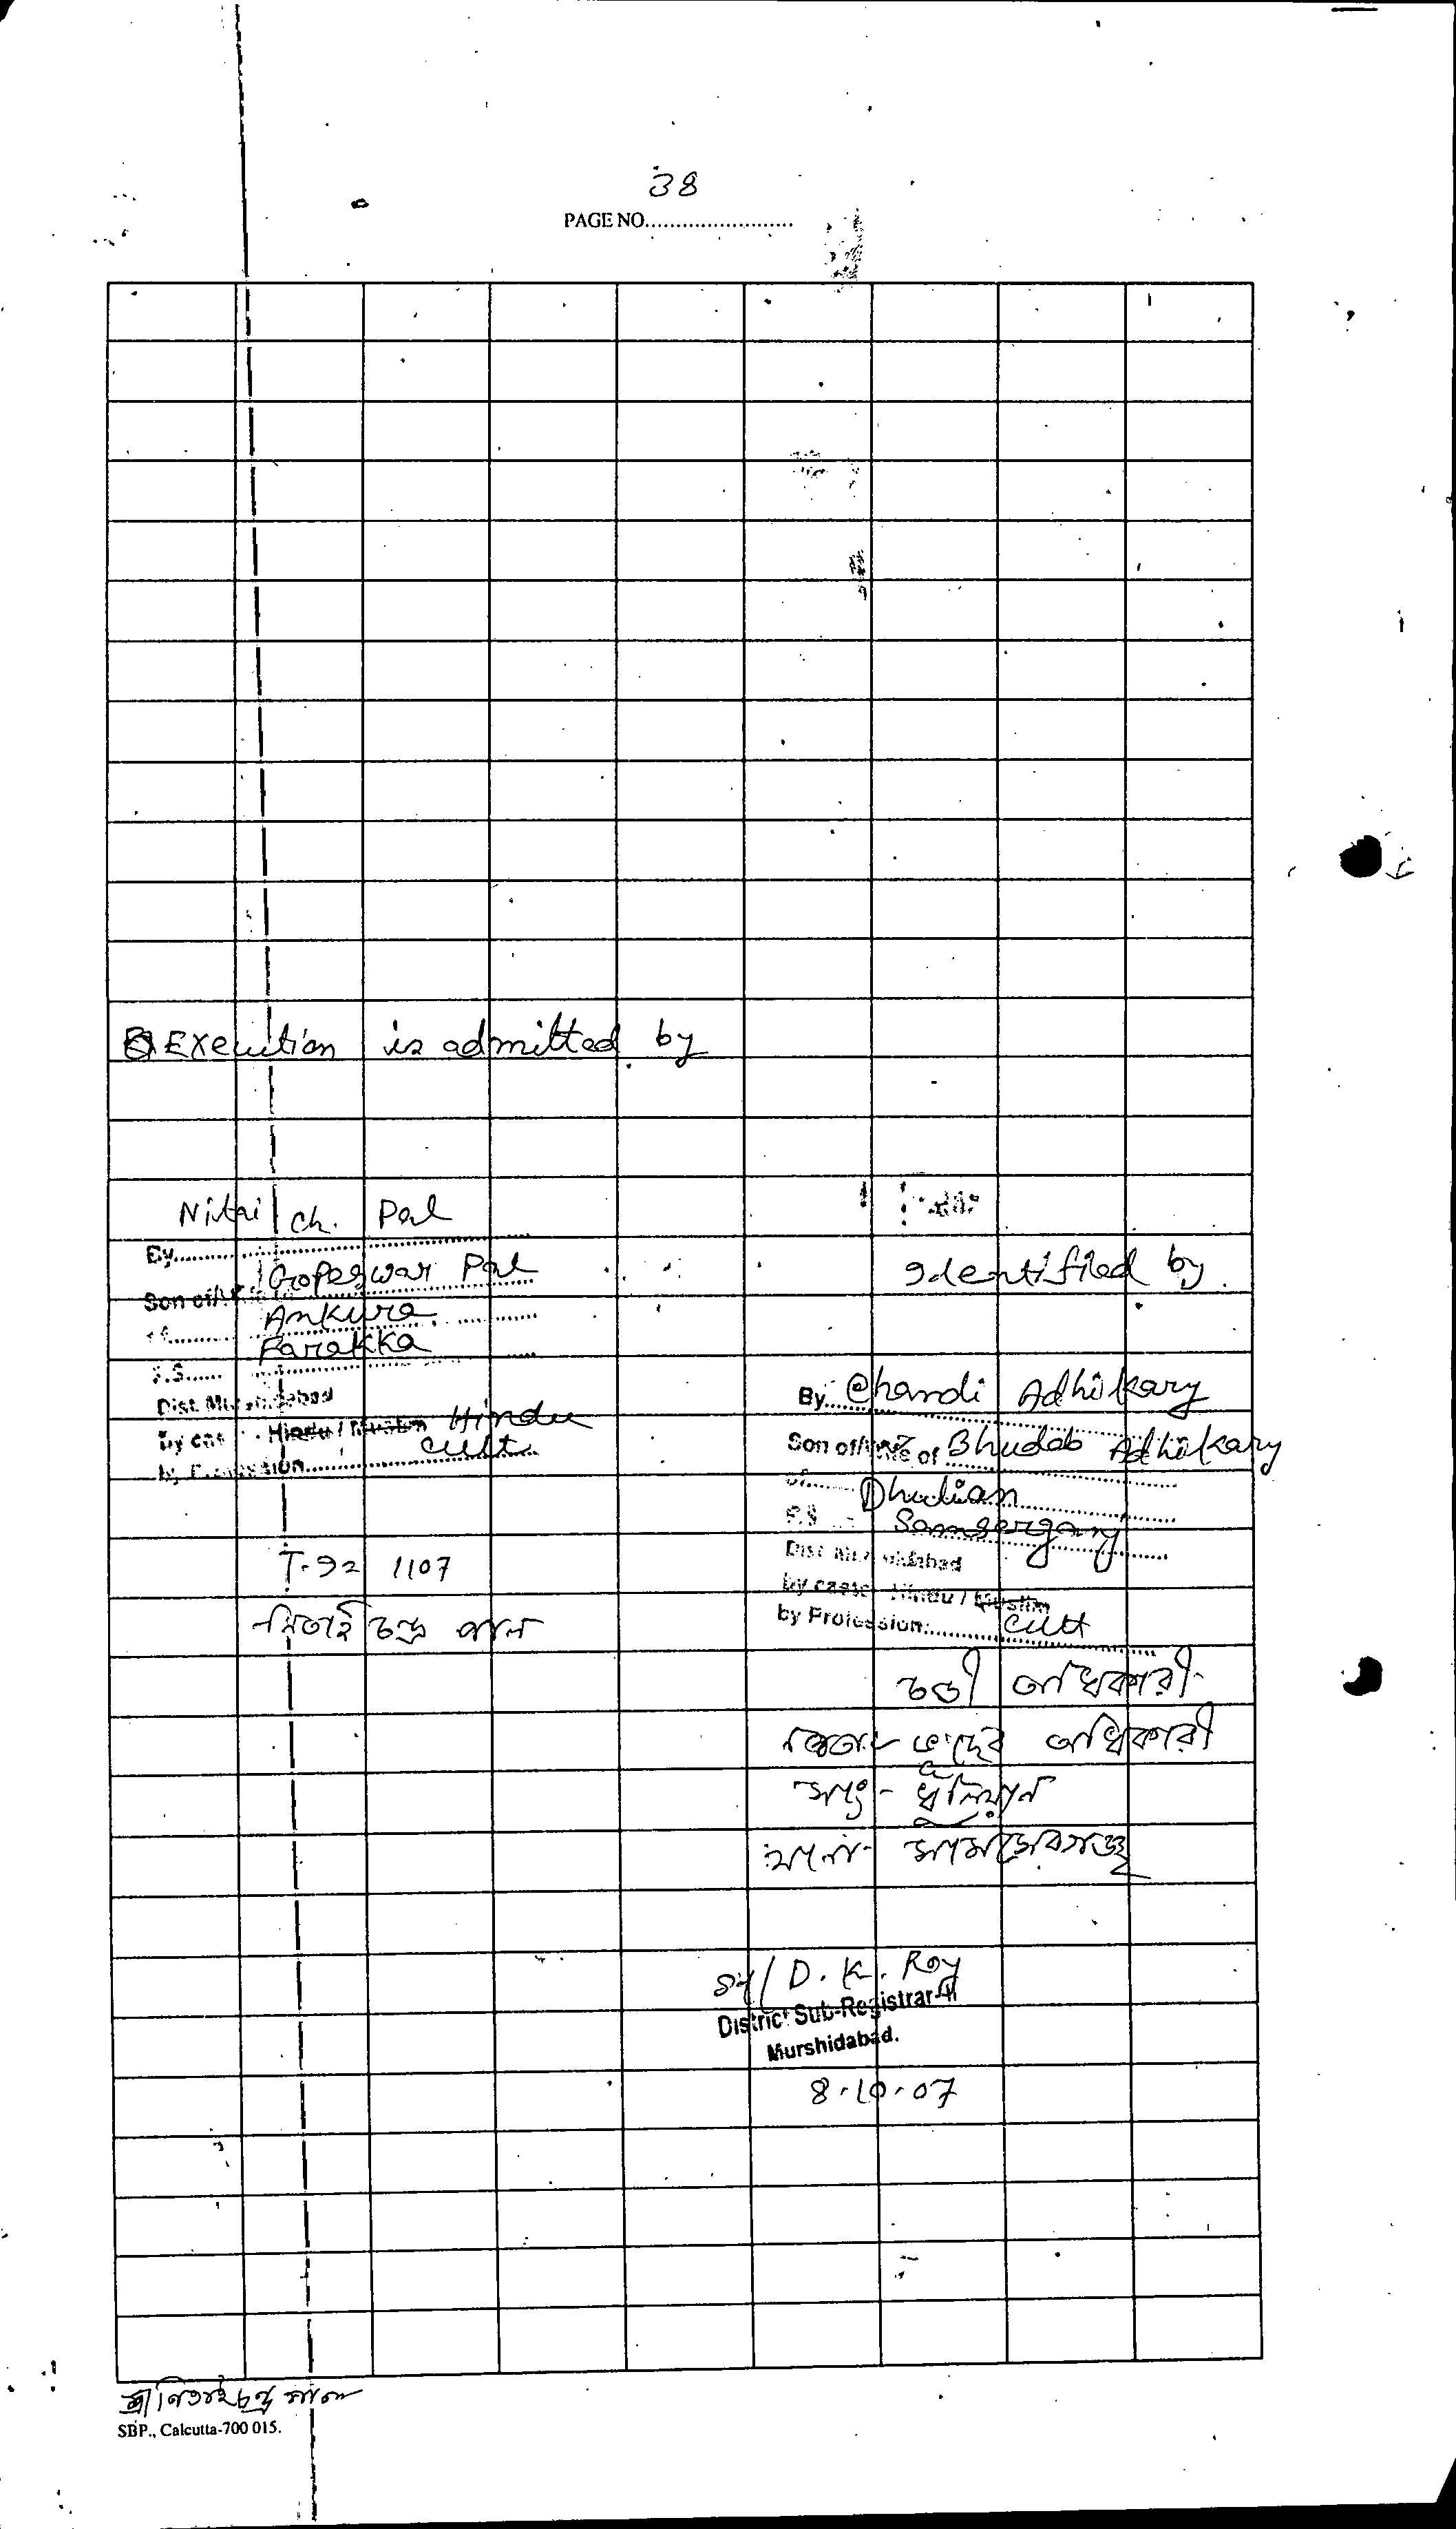 38
PAGE NO........................
Execution is admitted by
Nitai ch. Pal
By..........
Son of Gopeswar Pal
of.......... Ankura
P.S...... Farakka
Dist. Murshidabad
by caste Hindu / Muslim Hindu
by Profession.......... Cult
T-92 1107
নিতাই চন্দ্র পাল
Identified by
By Chandi Adhikary
Son of/Wife of Bhudeb Adhikary
of...... Dhulian
P.S ... Samserganj
Dist Murshidabad
by caste Hindu / Muslim
by Profession:.......... Cult
চন্ডী অধিকারী
পিতা- ভূদেব অধিকারী
সাং- ধুলিয়ান
থানা- সামসেরগঞ্জ
Sd/ D. K. Roy
District Sub-Registrar-II
Murshidabad.
8.10.07
শ্রী নিতাই চন্দ্র পাল
SBP., Calcutta-700 015.